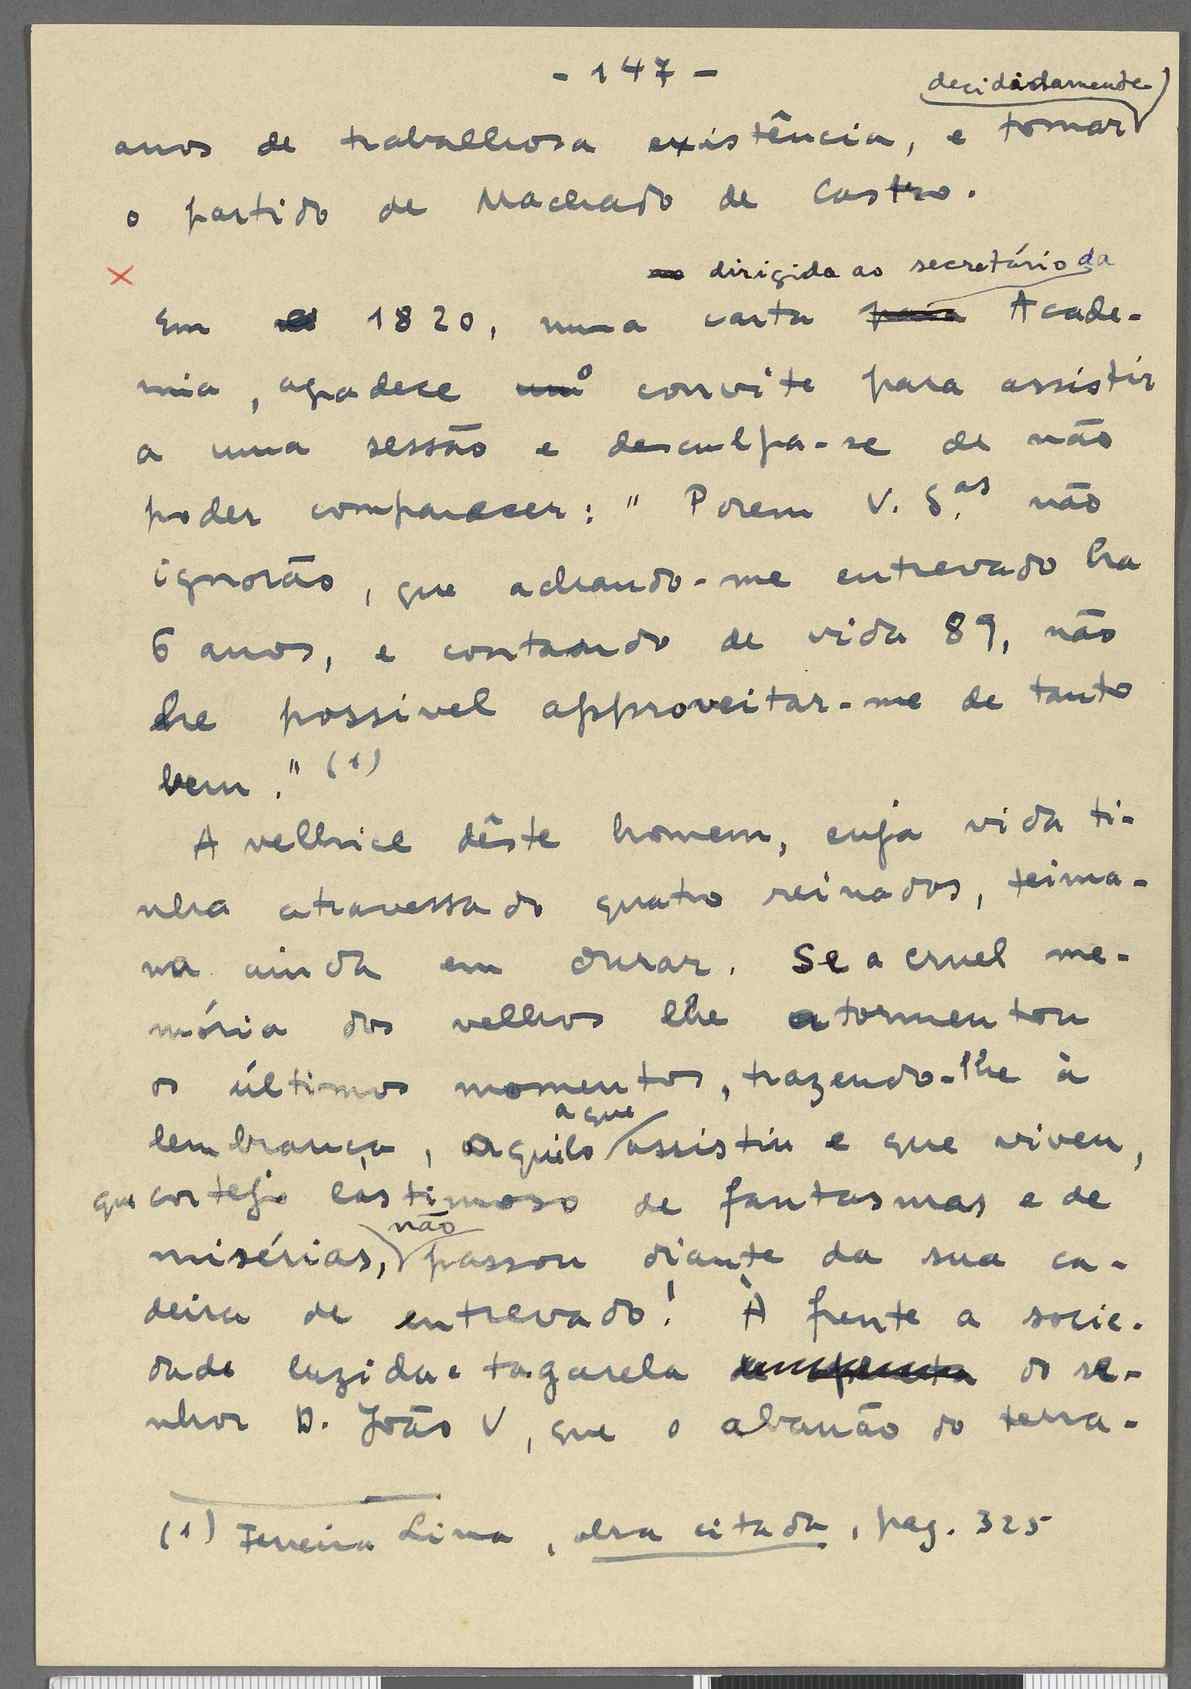 - 147 -
decididamente
anos de trabalhosa existência, e tomar
o partido de Machado de Castro.
dirigida ao secretário da
Em 1820, numa carta para Acade-
mia, agradece um o convite para assistir
a uma sessão e desculpa-se de não
poder comparecer: " Porem V. S.as não
ignorão, que achando-me entrevado ha
6 anos, e contando de vida 89, não
he possivel approveitar-me de tanto
bem." (1)
A velhice dêste homem, cuja vida ti-
nha atravessado quatro reinados, teima-
va ainda em durar. Se a cruel me-
mória dos velhos lhe atormentou
os últimos momentos, trazendo-lhe à
a que
lembrança, aquilo assistiu e que viveu,
que cortejo lastimoso de fantasmas e de
não
misérias, passou diante da sua ca-
deira de entrevado! À frente a socie-
dade luzida e tagarela do se-
nhor D. João V, que o abanão do terra-
(1) Ferreira Lima, obra citada, pag. 325